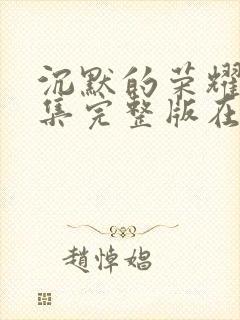 沉默的荣耀
集完整版在
趙悼娼